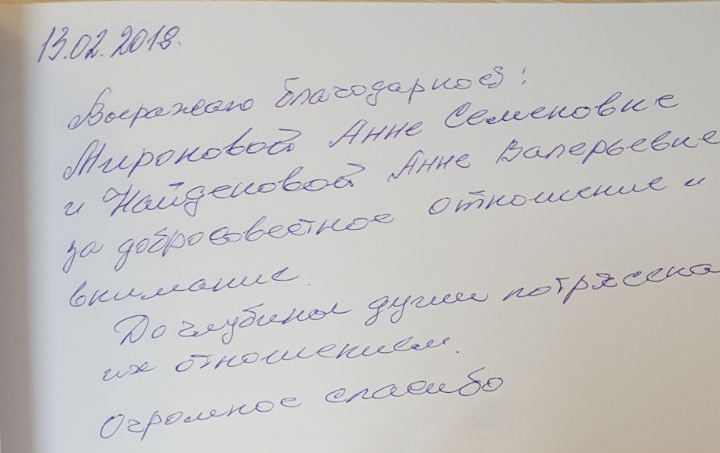 13.02.2018.
Выражаю благодарность:
Мироновой Анне Семеновне
и Найденовой Анне Валерьевне
за добросовестное отношение и
внимание.
До глубины души потрясена
их отношением.
Огромное спасибо